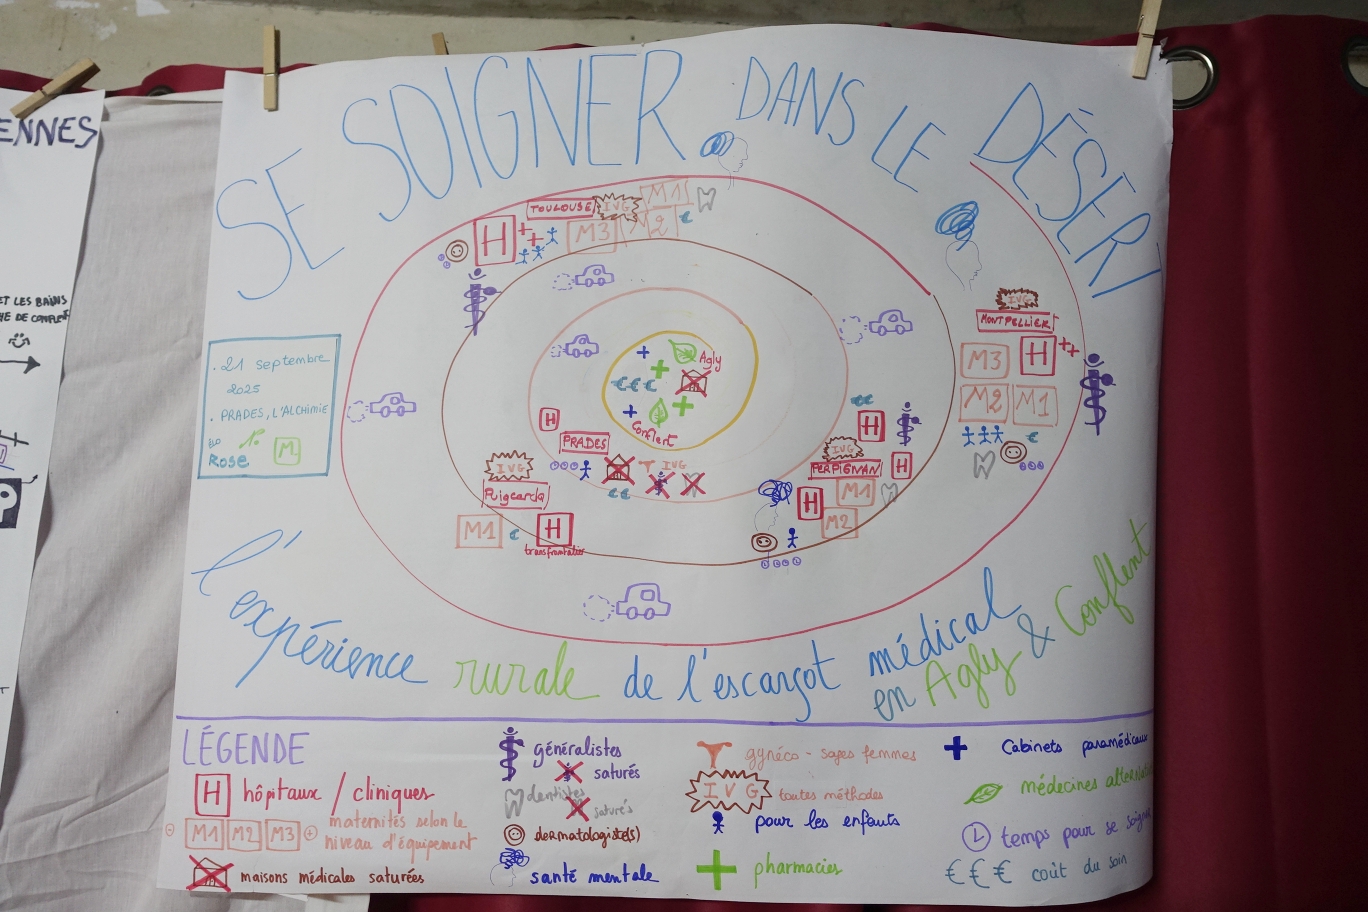 ENNES
ET LES BAINS
DE CONFLENT
SE SOIGNER DANS LE DÉSERT
TOULOUSE
IVG
M1
H
M3
M2
€
IVG
MONTPELLIER
M3
H
M2
M1
€
. 21 septembre
2025
. PRADES, L'ALCHIMIE
Rose
M
Agly
€€€
Conflent
H
PRADES
IVG
€€
IVG
Puigcerda
M1
€
H
transfrontalier
€€
H
IVG
PERPIGNAN
H
H
M1
M2
l'expérience rurale de l'escargot médical
en Agly & Conflent
LÉGENDE
H hôpitaux / cliniques
M1 M2 M3 maternités selon le
niveau d'équipement
maisons médicales saturées
généralistes
saturés
dentistes
saturés
dermatologiste(s)
santé mentale
gynéco - sages femmes
IVG toutes méthodes
pour les enfants
pharmacies
Cabinets paramédicaux
médecines
temps pour se soigner
€€€ coût du soin